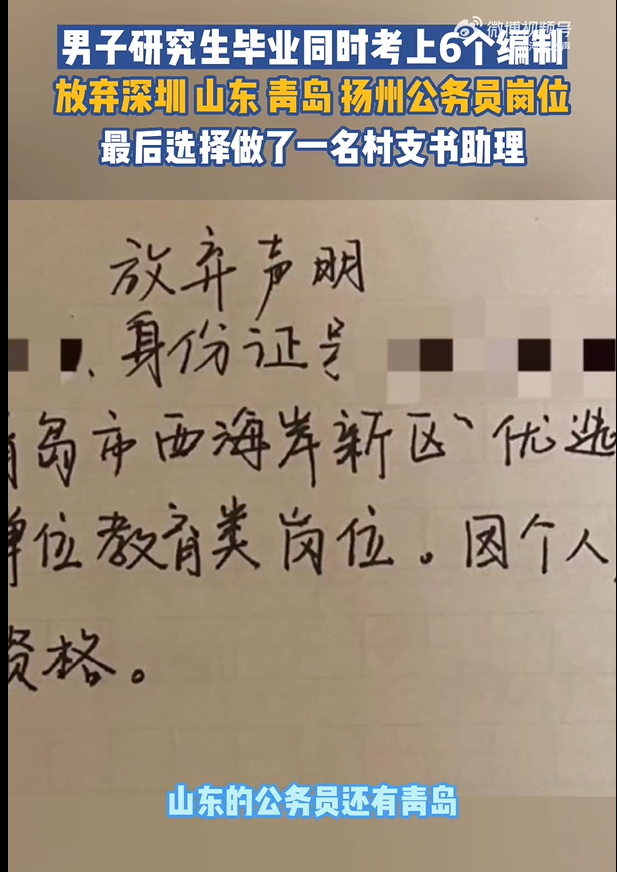 微博视频号
男子研究生毕业同时考上6个编制
放弃深圳 山东 青岛 扬州公务员岗位
最后选择做了一名村支书助理
放弃声明
、身份证号
青岛市西海岸新区“优选
单位教育类岗位。因个人
资格。
山东的公务员还有青岛